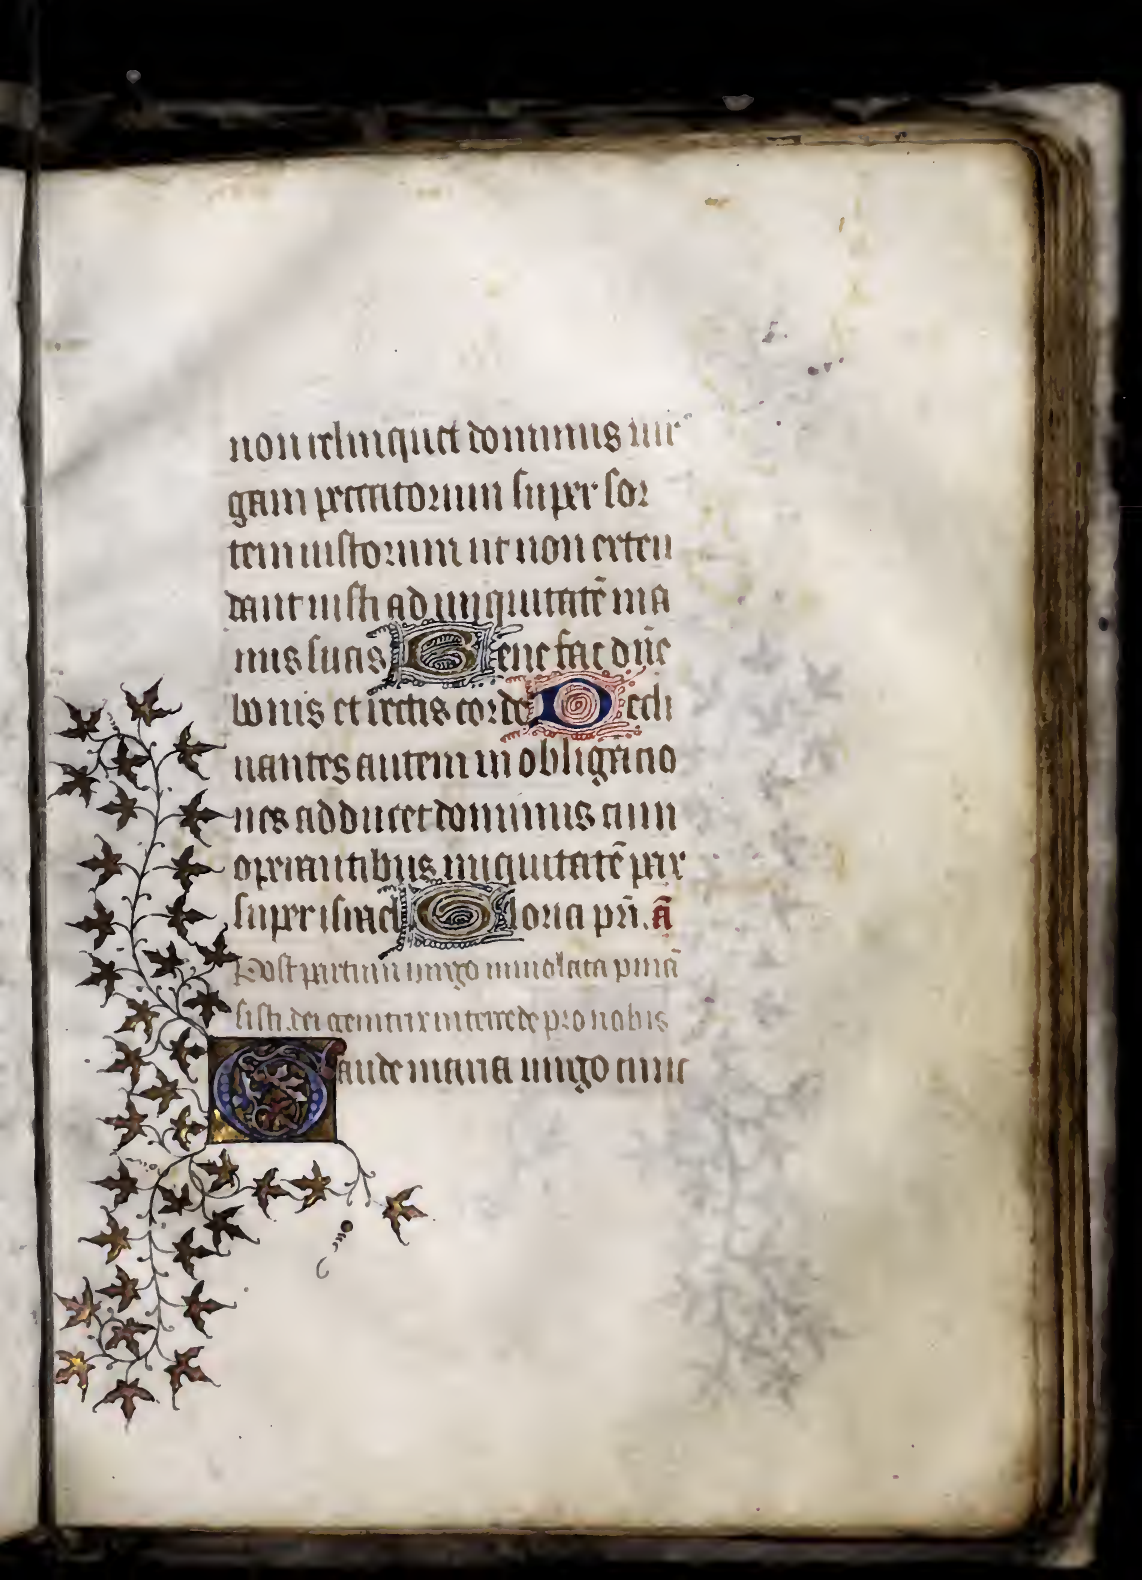 non relinquet dominus uir
gam peccatorum super sor
tem iustorum ut non exten
dant iusti ad iniquitatē ma
nus suas Bene fac dn̄e
bonis et rectis corde Decli
nantes autem in obligacio
nes adducet dominus cum
operantibus iniquitatē pax
super israel Gloria pr̄i. ā
Post partum uirgo inuiolata pmā
sisti. dei genitrix intercede pro nobis
Gaude maria uirgo cunc